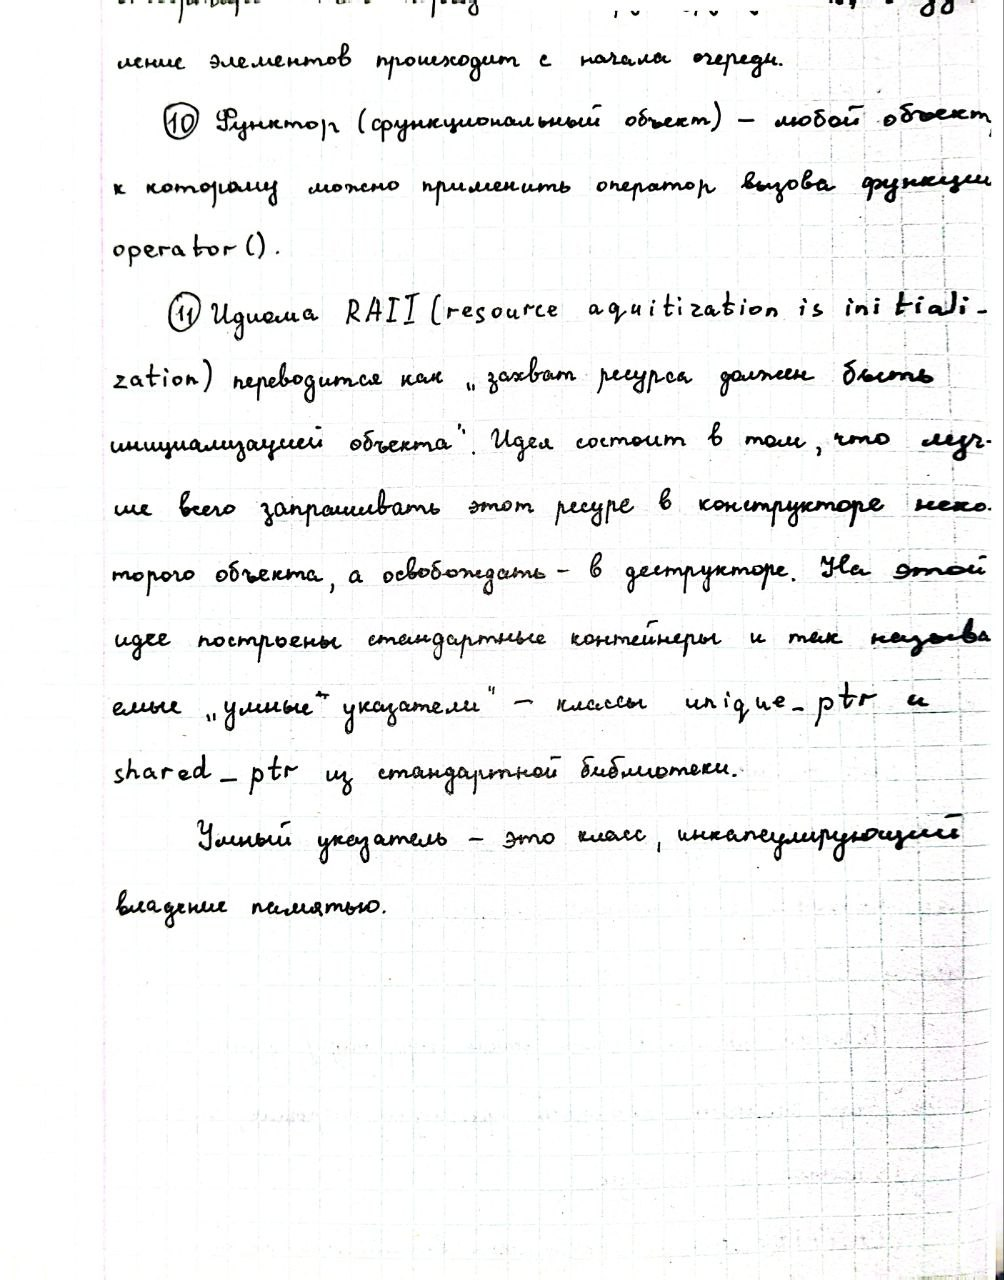 ление элементов происходит с начала очереди.
⑩ Функтор (функциональный объект) – любой объект,
к которому можно применить оператор вызова функции
operator().
⑪ Идиома RAII (resource aquitization is initiali-
zation) переводится как „захват ресурса должен быть
инициализацией объекта". Идея состоит в том, что луч-
ше всего запрашивать этот ресурс в конструкторе неко-
торого объекта, а освобождать – в деструкторе. На этой
идее построены стандартные контейнеры и так называ
емые „умные указатели" – классы unique_ptr и
shared_ptr из стандартной библиотеки.
Умный указатель – это класс, инкапсулирующий
владение памятью.